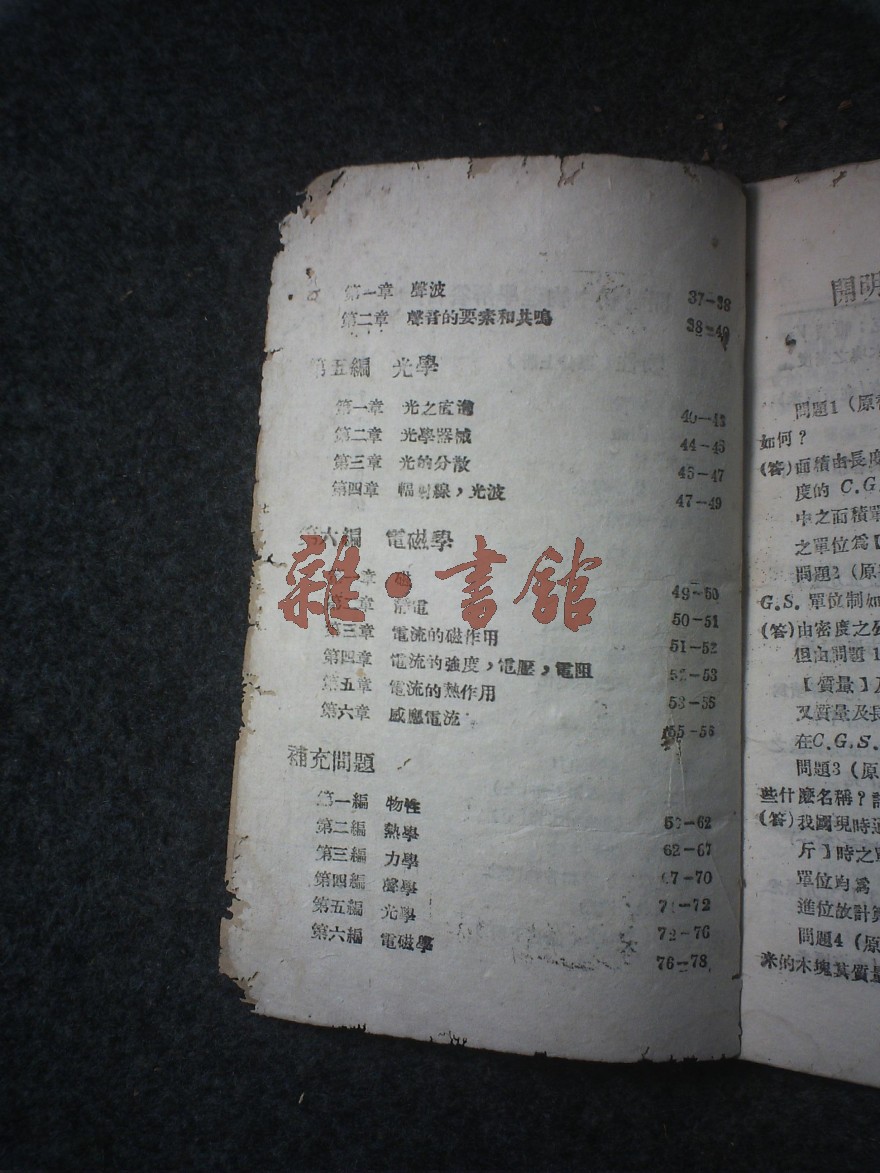 第一章 聲波 37—38
第二章 聲音的要素和共鳴 38—40
第五編 光學
第一章 光之直進 40—43
第二章 光學器械 44—45
第三章 光的分散 45—47
第四章 輻射線，光波 47—49
第六編 電磁學
章 磁 49—50
第二章 靜電 50—51
第三章 電流的磁作用 51—52
第四章 電流的強度，電壓，電阻 52—53
第五章 電流的熱作用 53—55
第六章 感應電流 55—56
補充問題
第一編 物性 56—62
第二編 熱學 62—67
第三編 力學 67—70
第四編 聲學 71—72
第五編 光學 72—76
第六編 電磁學 76—78
雜·書館
開明
問題1（原
如何？
(答)面積由長度
度的 C.G.
中之面積單
之單位為【
問題2（原
G.S. 單位制如
(答)由密度之公
但由問題1
【質量】及
又質量及長
在C.G.S.
問題3（原
些什麼名稱？
(答)我國現時通
斤】時之單
單位均為
進位故計算
問題4（原
來的木塊其質量